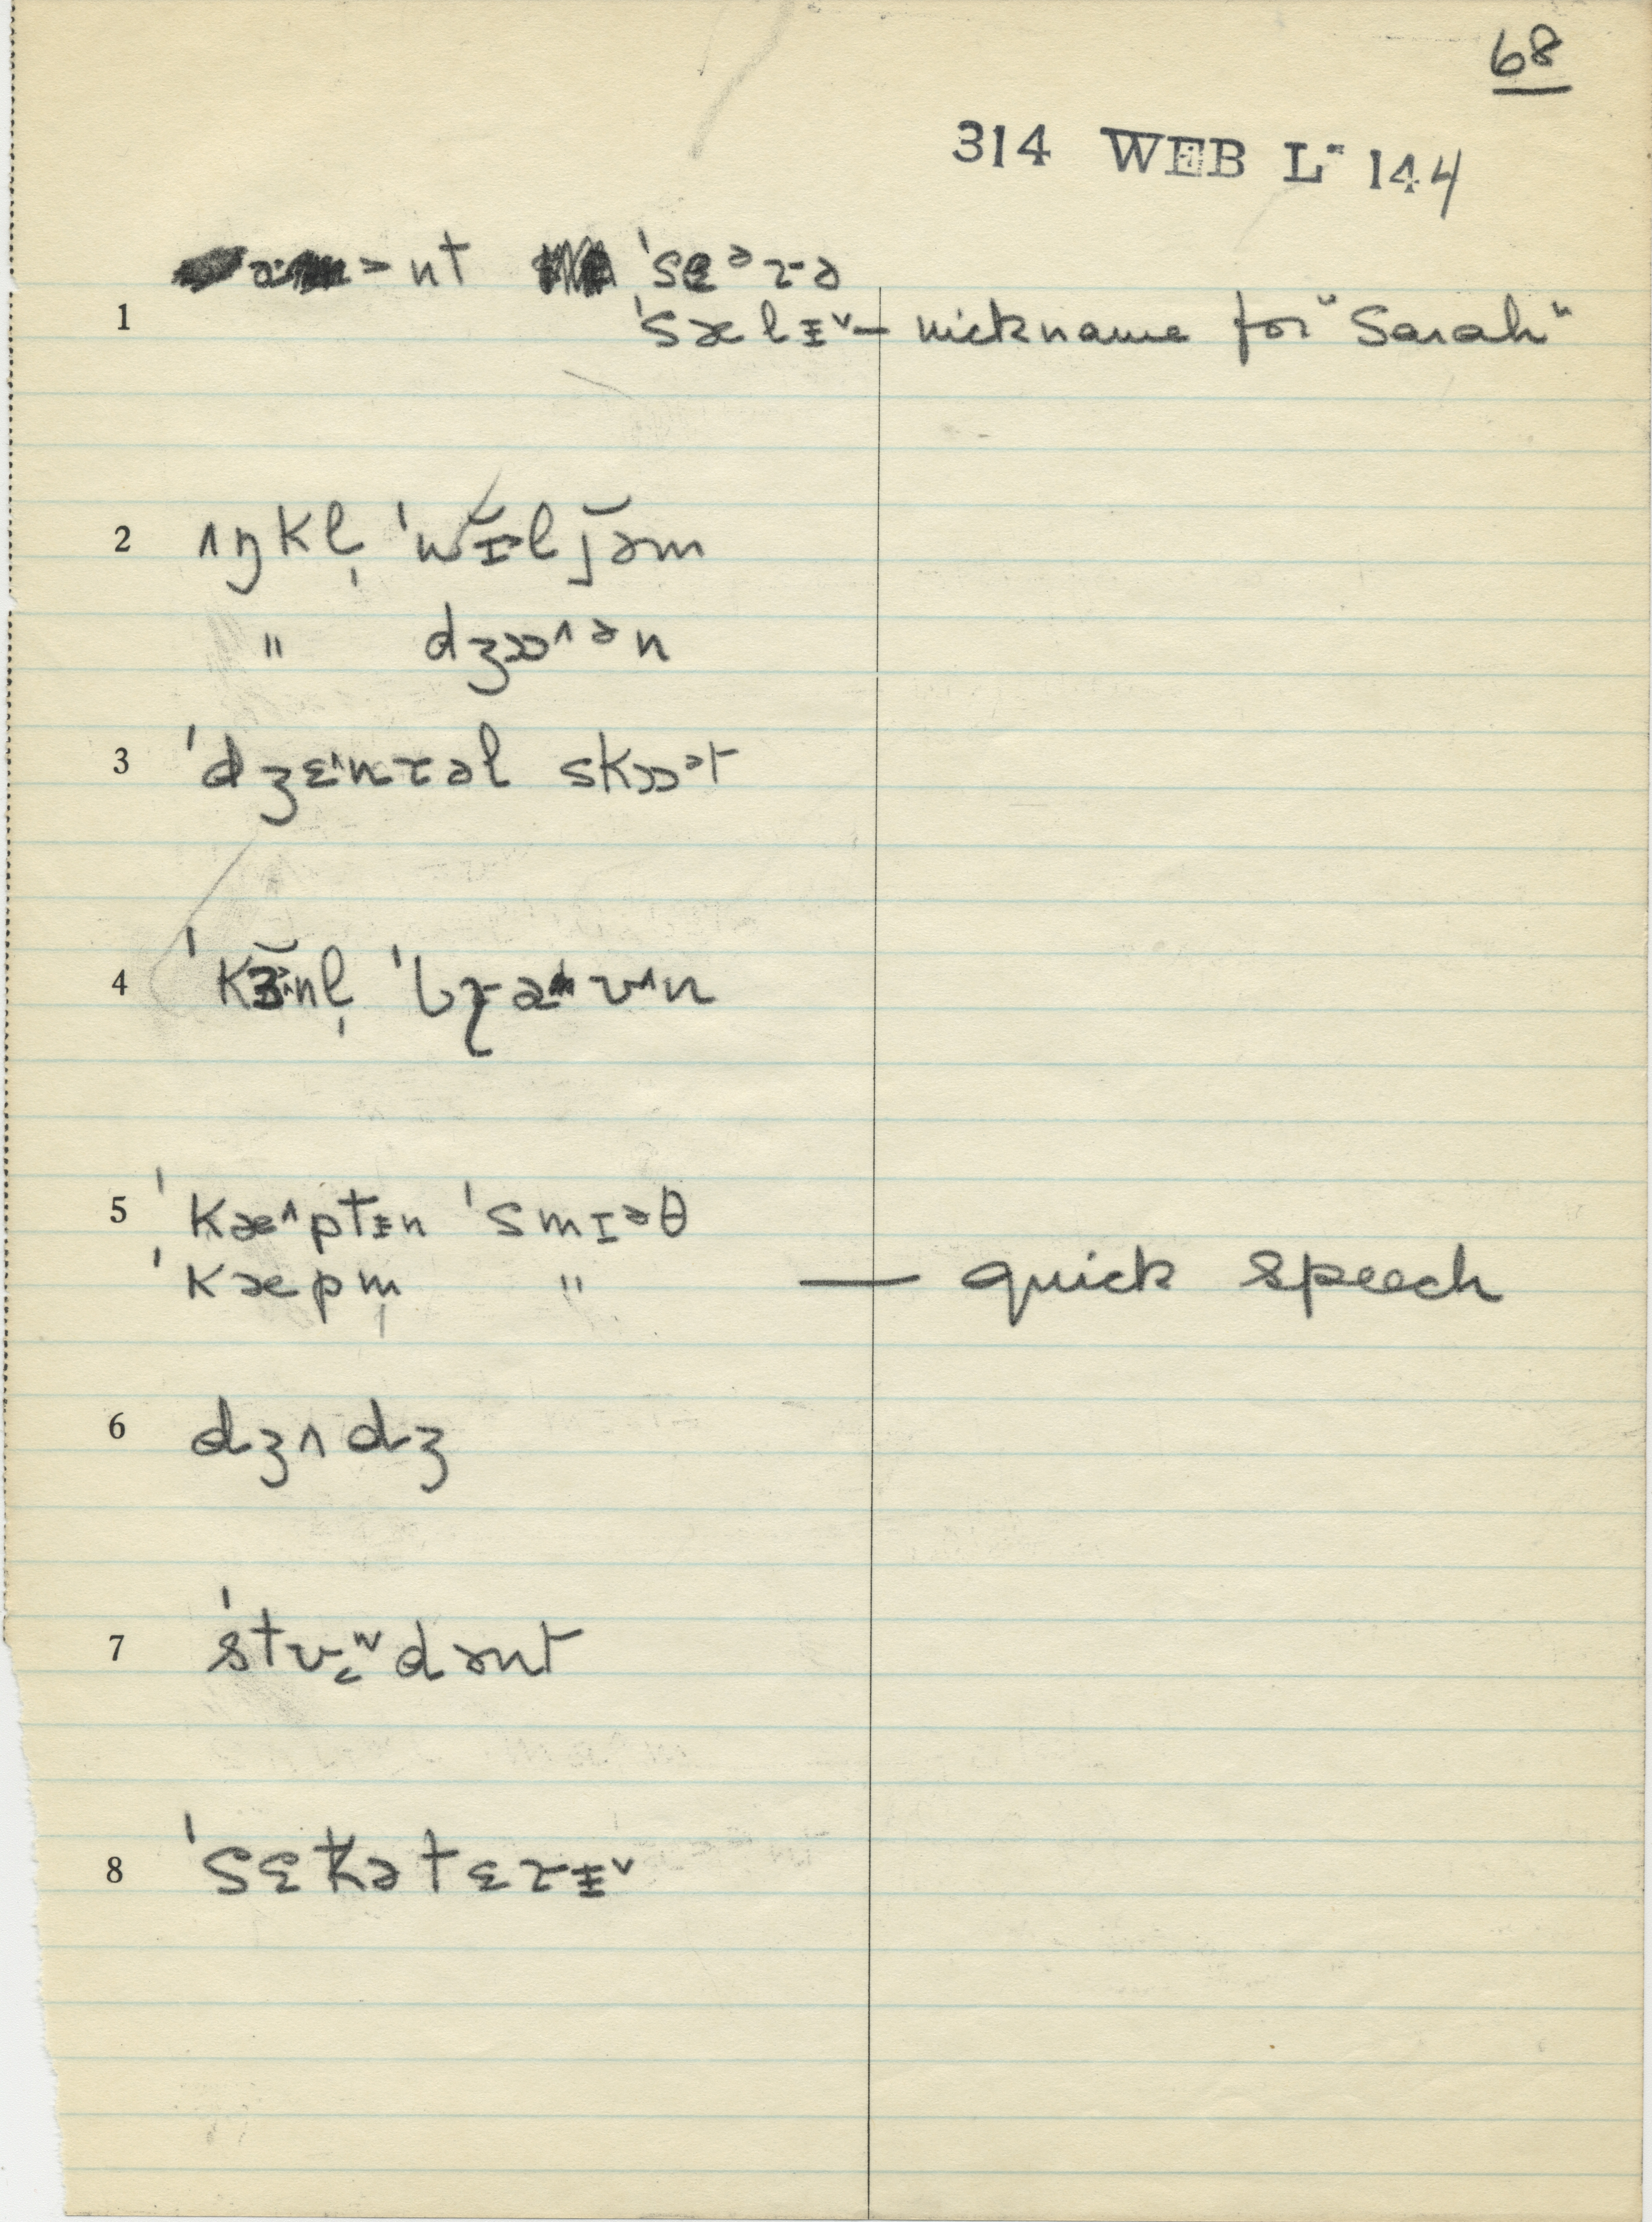 68
314 WEB L- 144
ənt ˈsɛᵊrə
1 ˈsælɨ˅ — nickname for "Sarah"
2 ʌŋkl̩ ˈwɪ̆ljəm
" dʒɒ˄ən
3 ˈdʒɛ˄nrəl skɒət
4 ˈkɜnl̩ ˈbɹav˄n
5 ˈkæ˄ptɨn ˈsmɪəθ
ˈkæpm̩ " — quick speech
6 dʒʌdʒ
7 ˈstʊdənt
8 ˈsɛkətɛrɨ˅